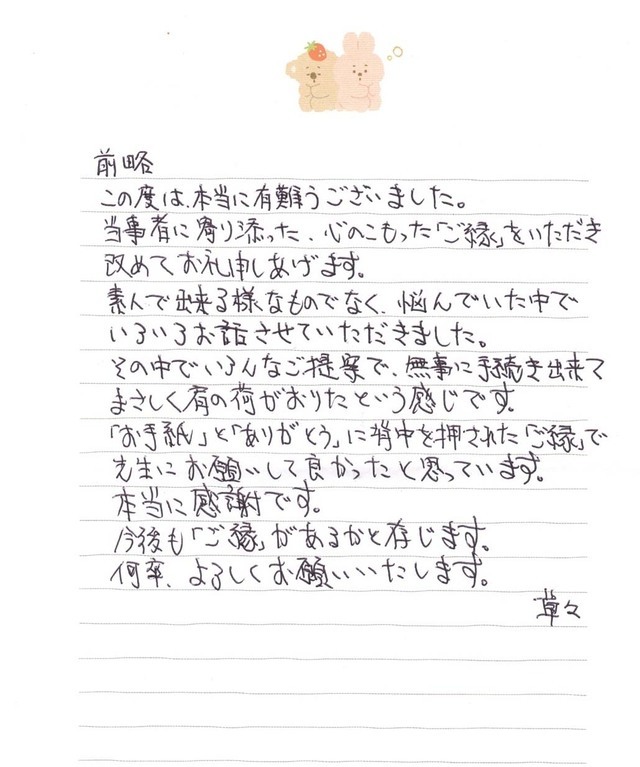 前略
この度は、本当に有難うございました。
当事者に寄り添った、心のこもった「ご縁」をいただき
改めてお礼申しあげます。
素人で出来る様なものでなく、悩んでいた中で
いろいろお話させていただきました。
その中でいろんなご提案で、無事に手続き出来て
まさしく肩の荷がおりたという感じです。
「お手紙」と「ありがとう」に背中を押された「ご縁」で
先生にお願いして良かったと思っています。
本当に感謝です。
今後も「ご縁」があるかと存じます。
何卒、よろしくお願いいたします。
草々